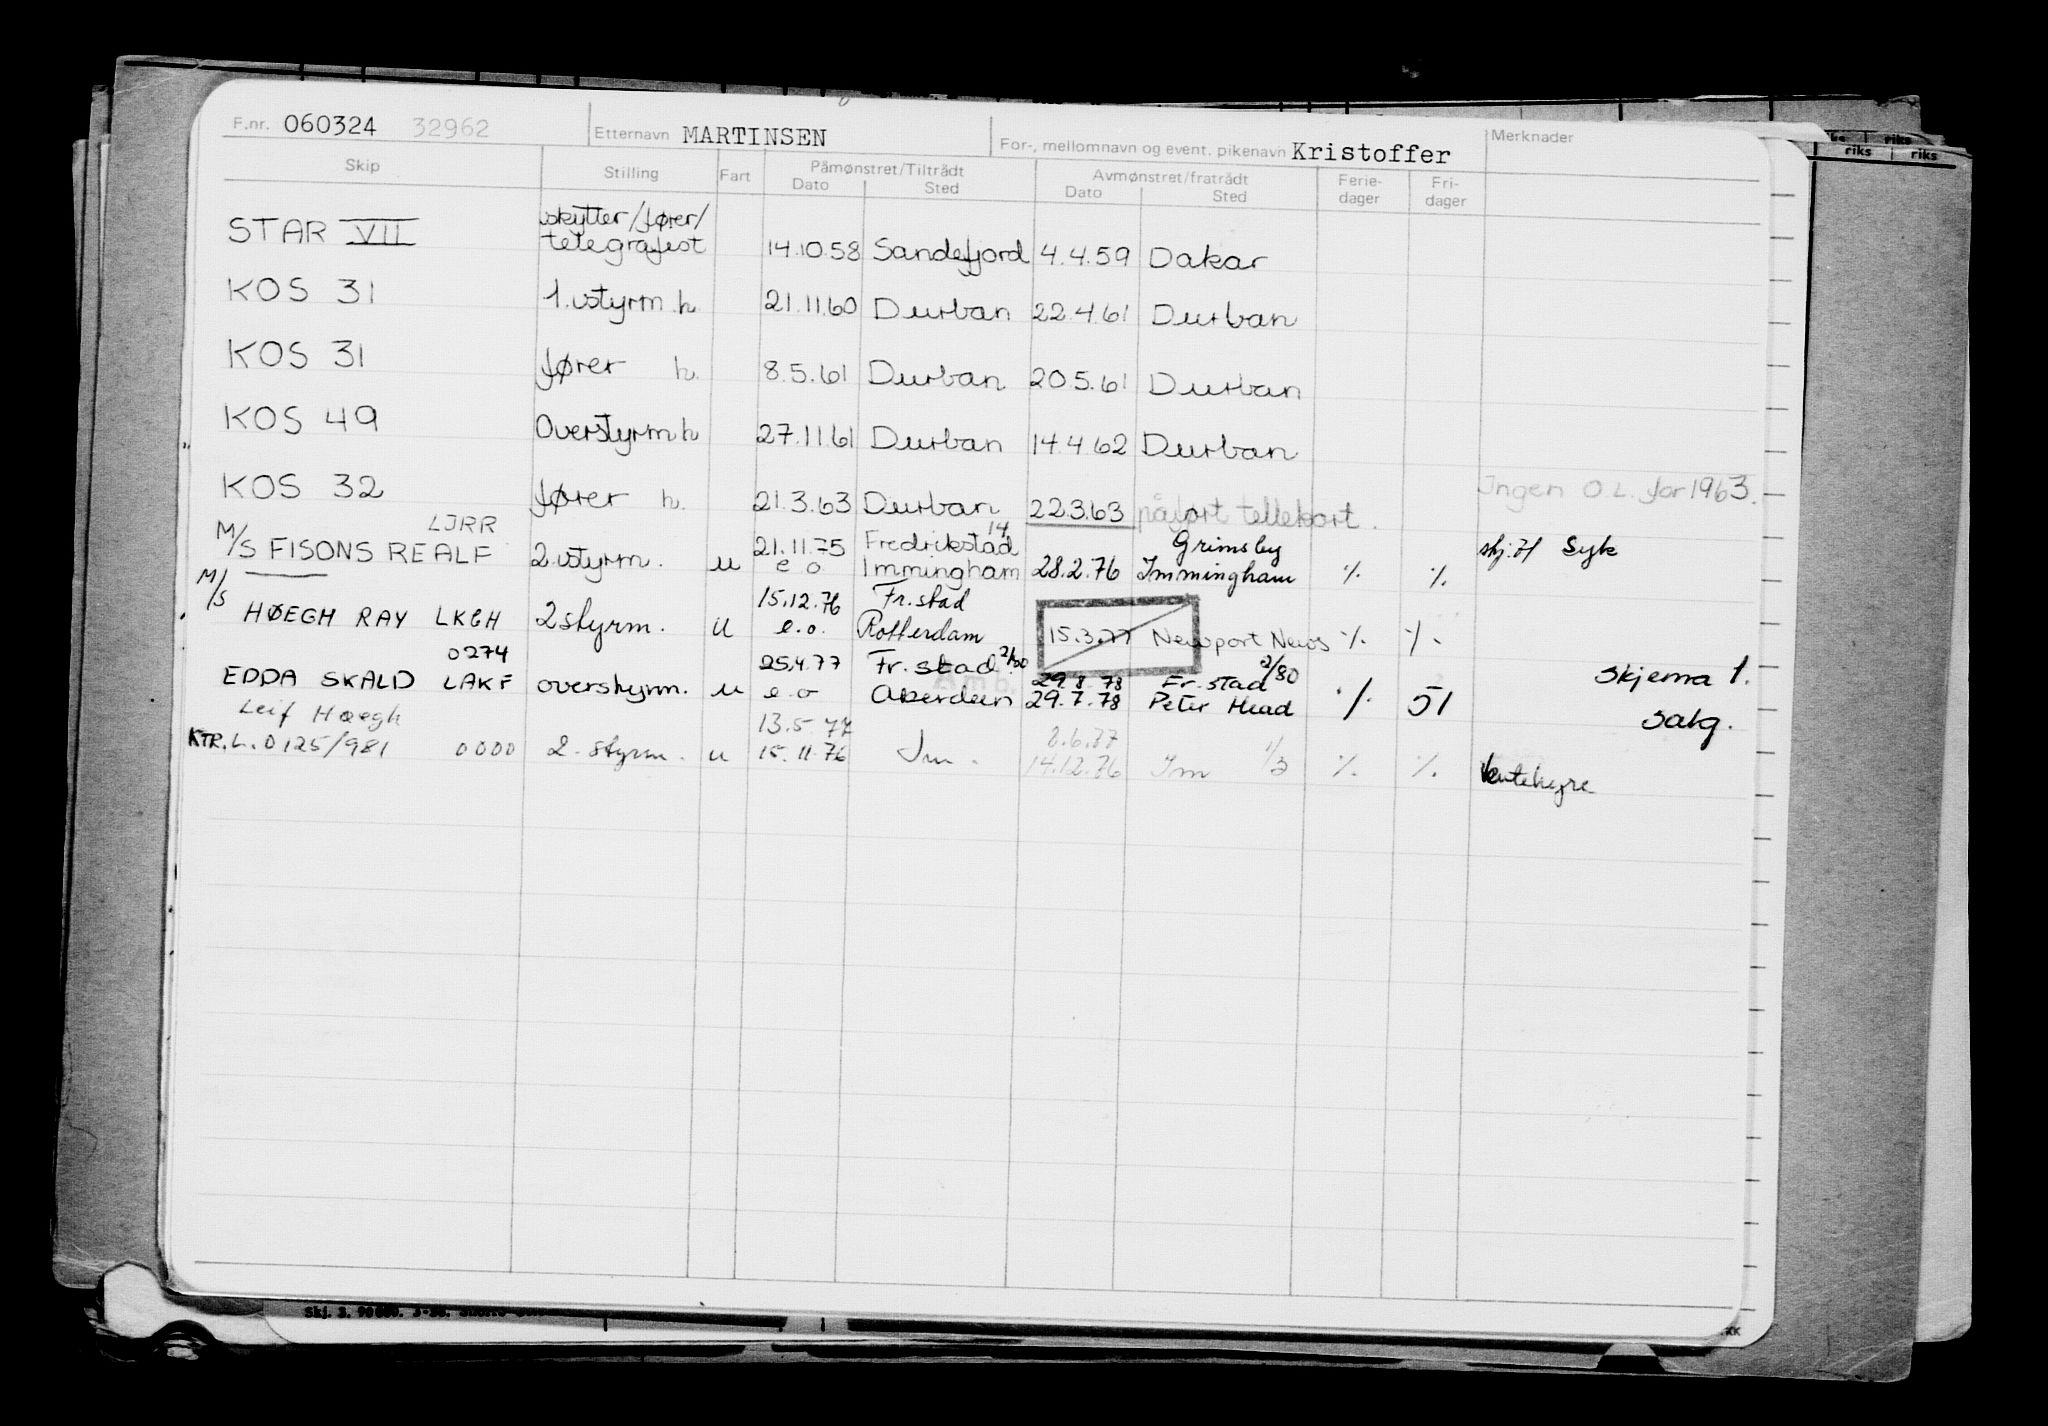 F.nr. 060324 32962 Etternavn MARTINSEN For-, mellomnavn og event. pikenavn Kristoffer Merknader
Skip Stilling Fart Påmønstret/Tiltrådt Avmønstret/fratrådt Ferie- Fri-
Dato Sted Dato Sted dager dager
skytter/fører/
STAR VII telegrafist 14.10.58 Sandefjord 4.4.59 Dakar
KOS 31 1.styrm h. 21.11.60 Durban 22.4.61 Durban
KOS 31 fører h. 8.5.61 Durban 20.5.61 Durban
KOS 49 Overstyrm h 27.11.61 Durban 14.4.62 Durban
KOS 32 fører h. 21.3.63 Durban 22.3.63 påført tellekort. Ingen O.L. for 1963.
LJRR 21.11.75 Fredrikstad 14 Grimsby
M/S FISONS REALF 2.styrm. u e.o. Immingham 28.2.76 Immingham % % skj. Syk
M/S 15.12.76 Fr.stad
HØEGH RAY LKGH 2 styrm. u e.o. Rotterdam 15.3.77 Newport News % %.
0274 25.4.77 Fr.stad 2/80 29.8.78 Fr.stad 2/80 Skjema 1.
EDDA SKALD LAKF overstyrm. u e.o Aberdeen 29.7.78 Peter Head % 51 Salg.
Leif Høegh 13.5.77 2.6.77
KTR.L.0125/981 0000 2. styrm. u 15.11.76 14.12.76 1/3 % %. Ventehyre
riks riks
riks